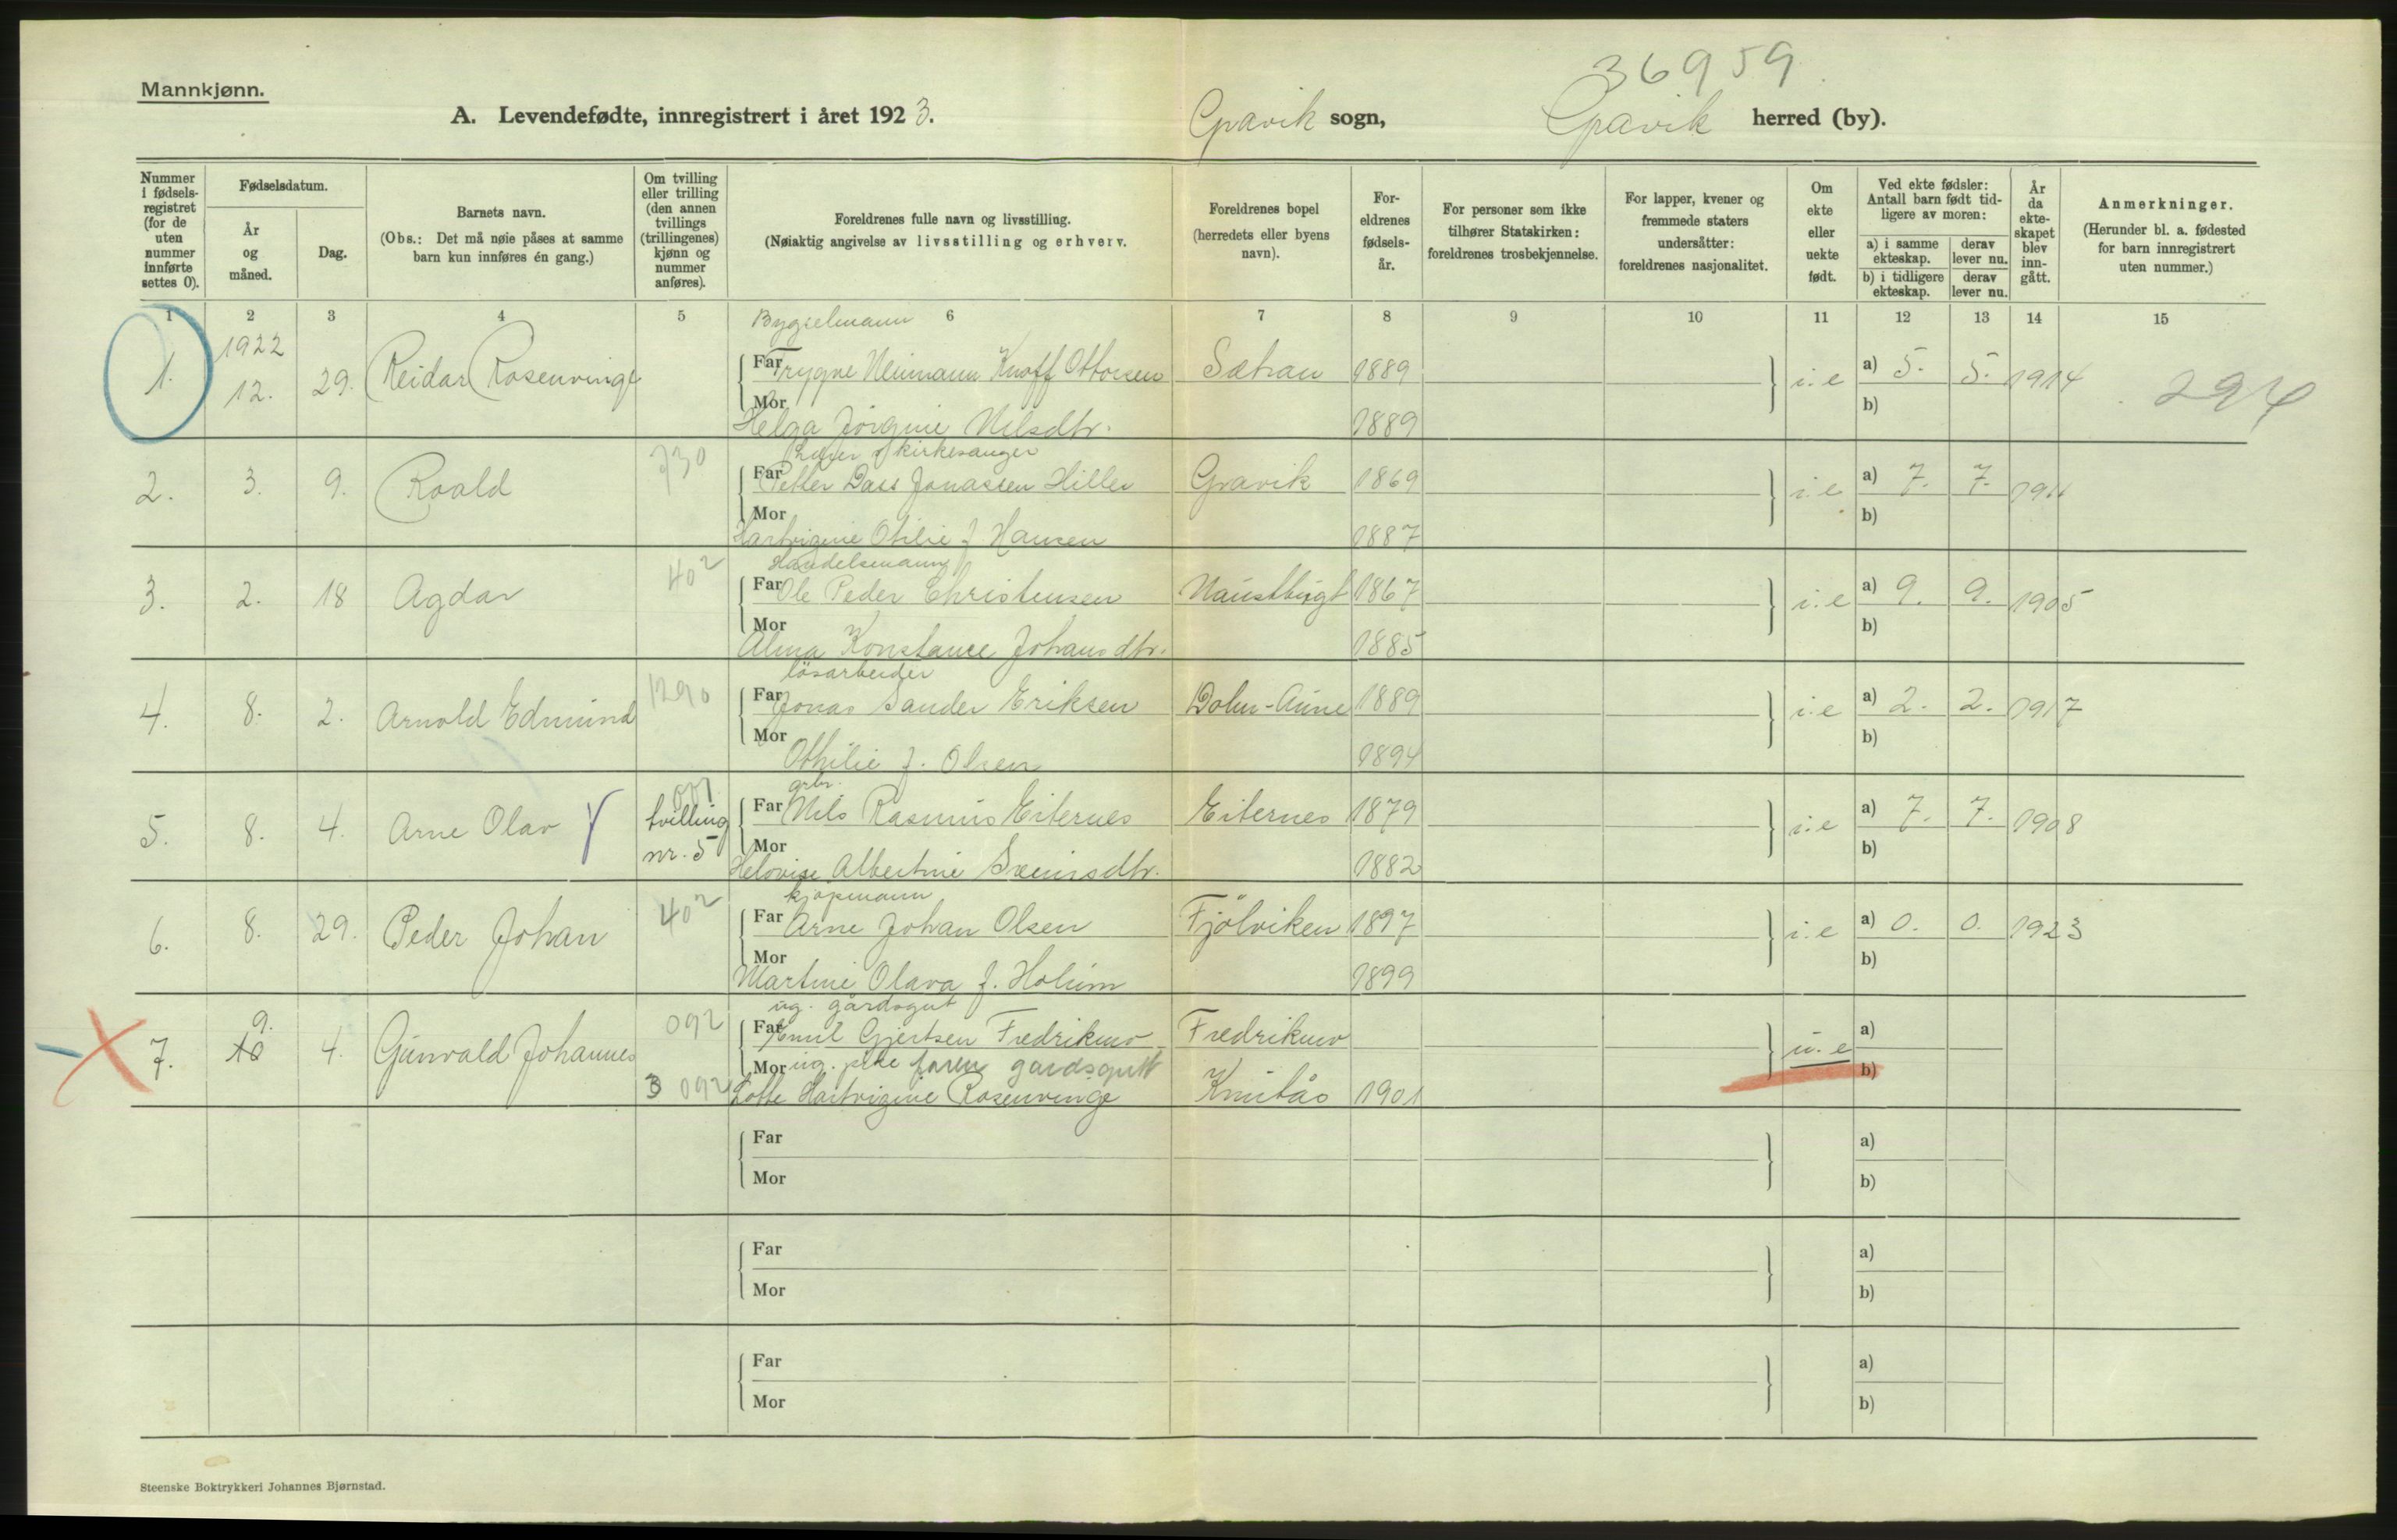 Mannkjønn.
36959
A. Levendefødte, innregistrert i året 1923. Gravik sogn, Gravik herred (by).
Nummer i fødsels-registret (for de uten nummer innførte settes 0).
Fødselsdatum.
År og måned.
Dag.
Barnets navn.
(Obs.: Det må nøie påses at samme barn kun innføres én gang.)
Om tvilling eller trilling (den annen tvillings (trillingenes) kjønn og nummer anføres).
Foreldrenes fulle navn og livsstilling.
(Nøiaktig angivelse av livsstilling og erhverv.
Foreldrenes bopel (herredets eller byens navn).
For-eldrenes fødsels-år.
For personer som ikke tilhører Statskirken: foreldrenes trosbekjennelse.
For lapper, kvener og fremmede staters undersåtter: foreldrenes nasjonalitet.
Om ekte eller uekte født.
Ved ekte fødsler: Antall barn født tid-ligere av moren:
a) i samme ekteskap.
derav lever nu.
b) i tidligere ekteskap.
derav lever nu.
År da ekte-skapet blev inn-gått.
Anmerkninger.
(Herunder bl. a. fødested for barn innregistrert uten nummer.)
1 2 3 4 5 6 7 8 9 10 11 12 13 14 15
Bygselmann
1. 1922 12. 29. Reidar Rosenvinge Far Trygve Neumann Knoff Ottersen Sætran 1889 i.e a) 5. 5. 1914 294
Mor Helga Jörgine Nilsdtr. 1889 b)
Lærer & kirkesanger
2. 3. 9. Roald 730 Far Petter Dass Jonassen Hiller Gravik 1869 i.e a) 7. 7. 1911
Mor Hartvigine Otilie f. Hansen 1887 b)
Handelsmann
3. 2. 18 Agdar 402 Far Ole Peder Christensen Naustbugt 1867 i.e a) 9. 9. 1905
Mor Alma Konstance Johansdtr. 1885 b)
lösarbeider
4. 8. 2. Arnold Edmund 1290 Far Jonas Sander Eriksen Dohn-Aune 1889 i.e a) 2. 2. 1917
Mor Othilie f. Olsen 1894 b)
grbr.
5. 8. 4. Arne Olav 001 tvilling nr. 5 Far Nils Rasmus Eiternes Eiternes 1879 i.e a) 7. 7. 1908
Mor Helovise Albertine Sveinsdtr. 1882 b)
kjöpmann
6. 8. 29. Peder Johan 402 Far Arne Johan Olsen Fjölviken 1897 i.e a) 0. 0. 1923
Mor Martine Olava f. Holum 1899 b)
ug. gårdsgut
7. 9. 10 4. Gunvald Johannes 092 Far Emil Gjertsen Fredriksnes Fredriksnes u.e a)
Mor ug. pike faren gardsgutt b)
3 092 Lotte Hartvigine Rosenvinge Knutås 1901
Far a)
Mor b)
Far a)
Mor b)
Far a)
Mor b)
Steenske Boktrykkeri Johannes Bjørnstad.